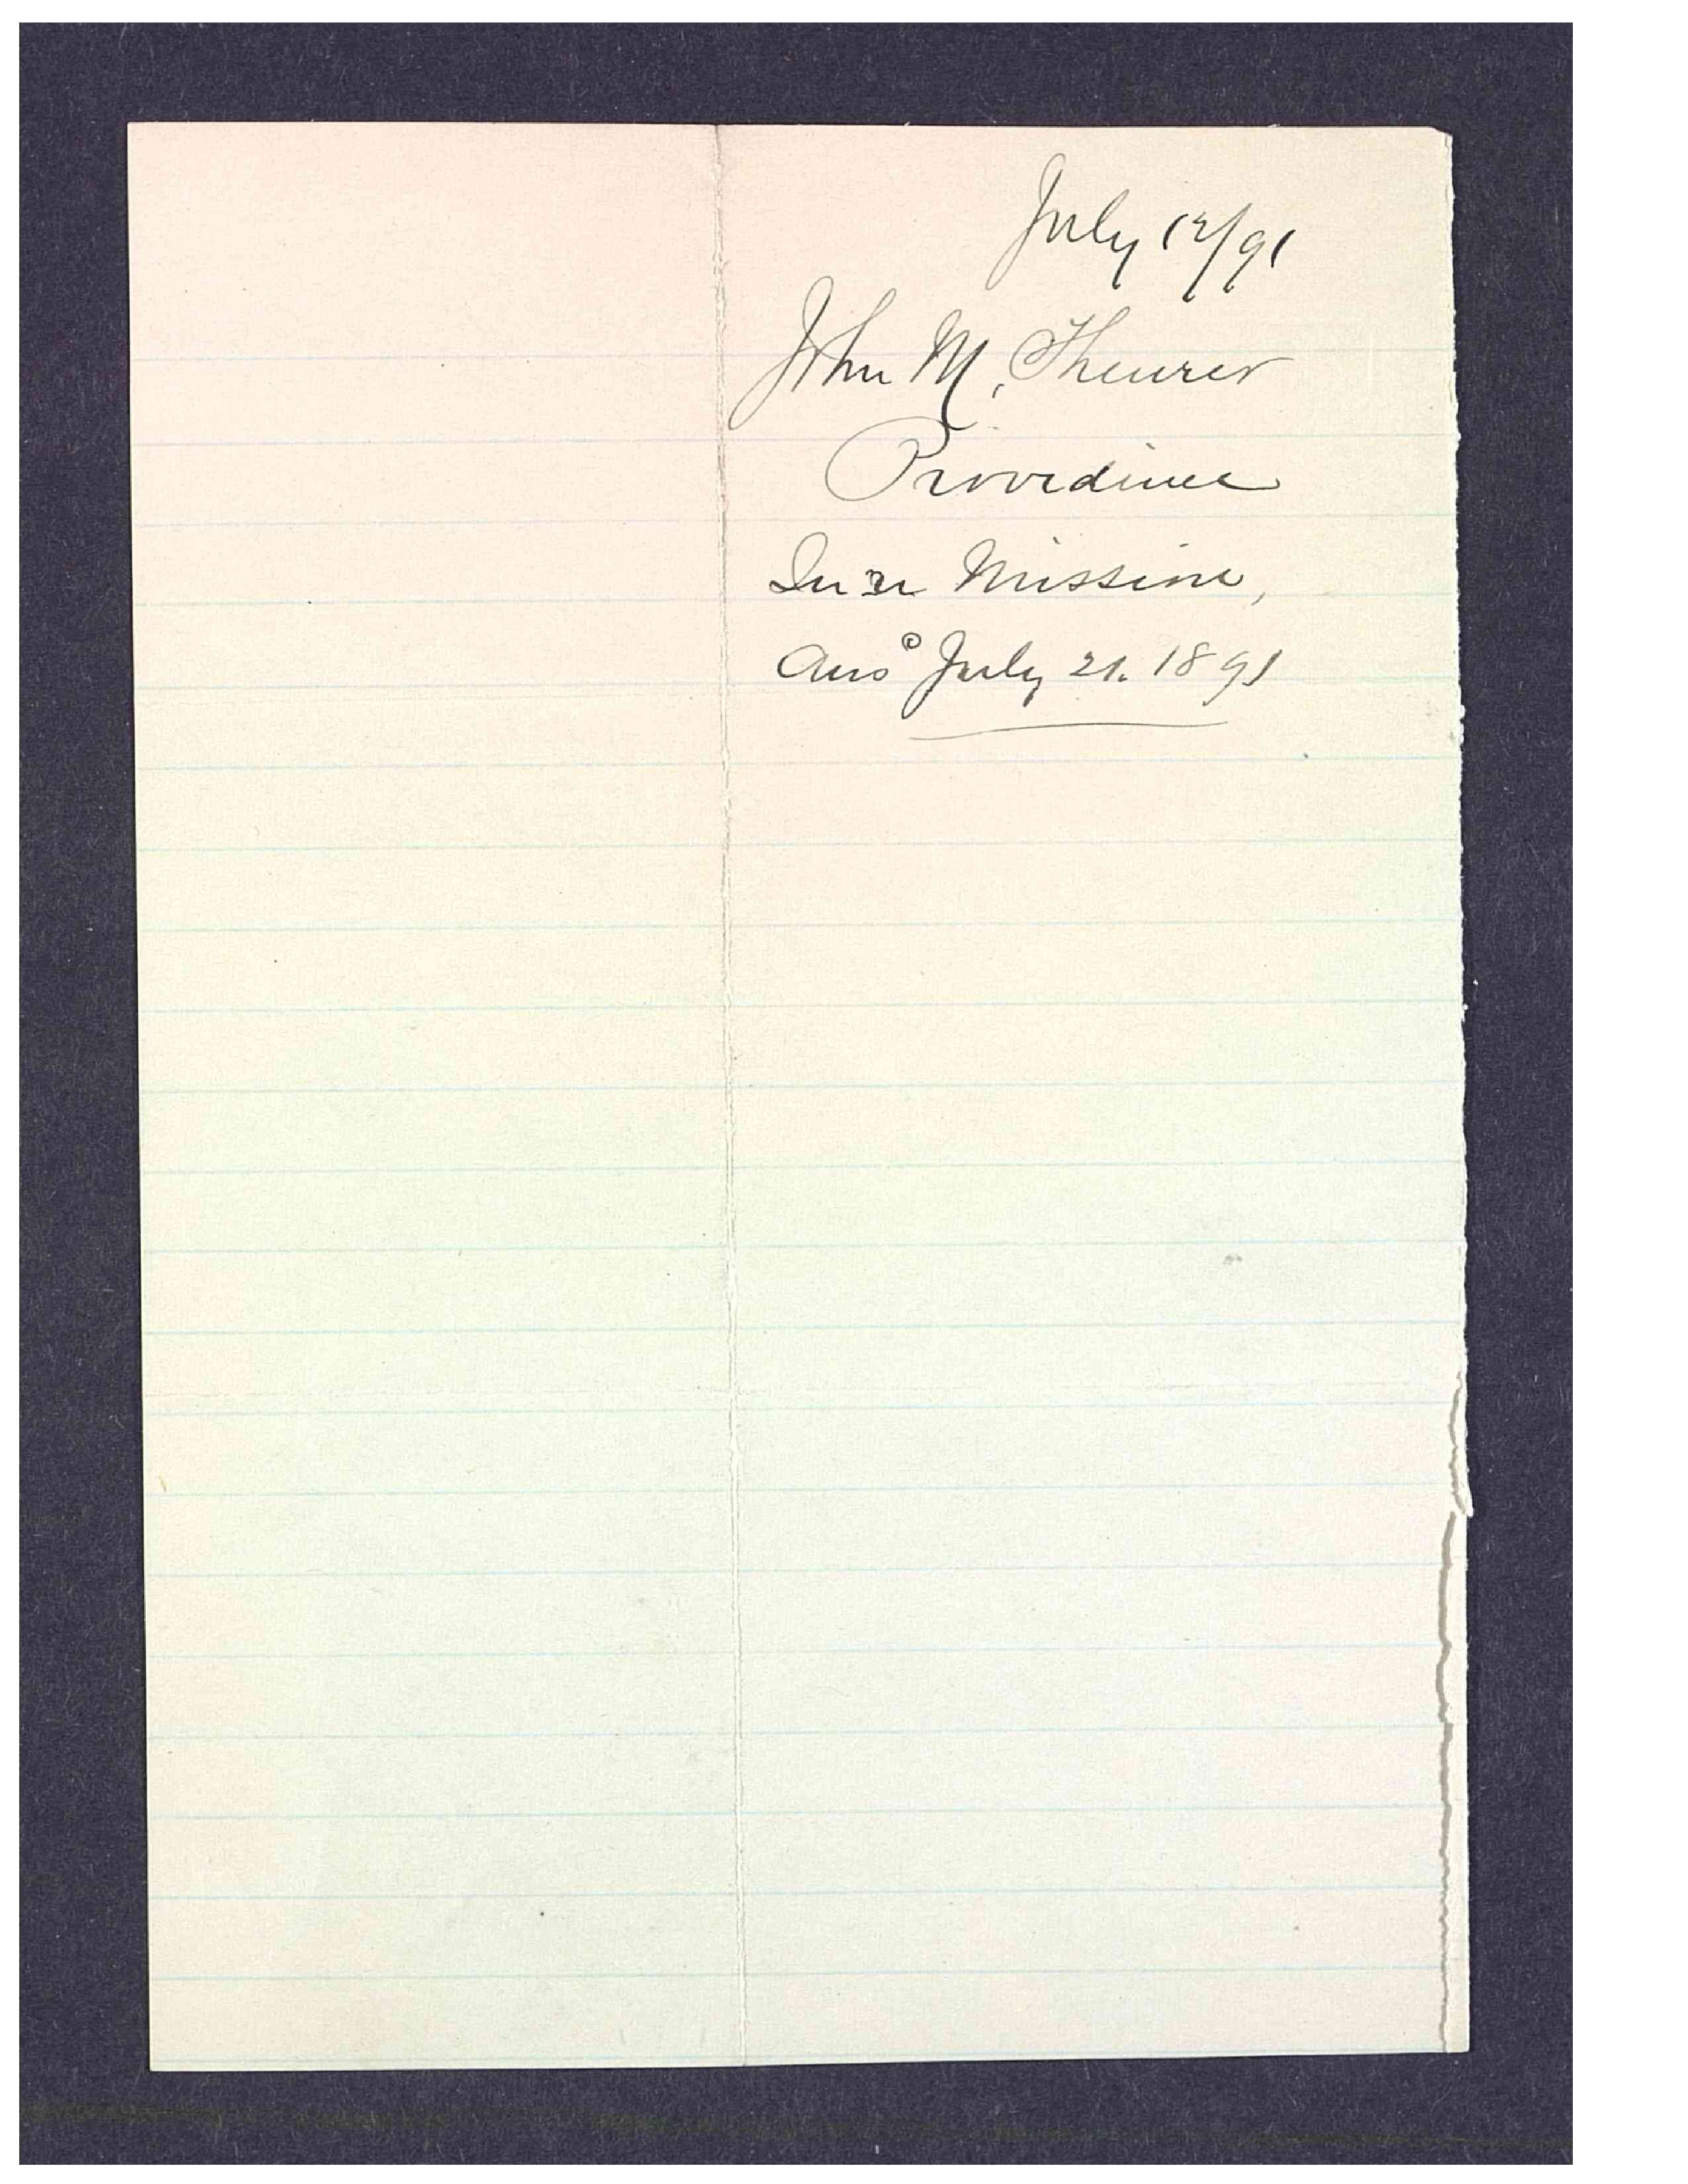 July 12/91
John M. Theurer
Providence
In re Mission,
Ans July 21. 1891